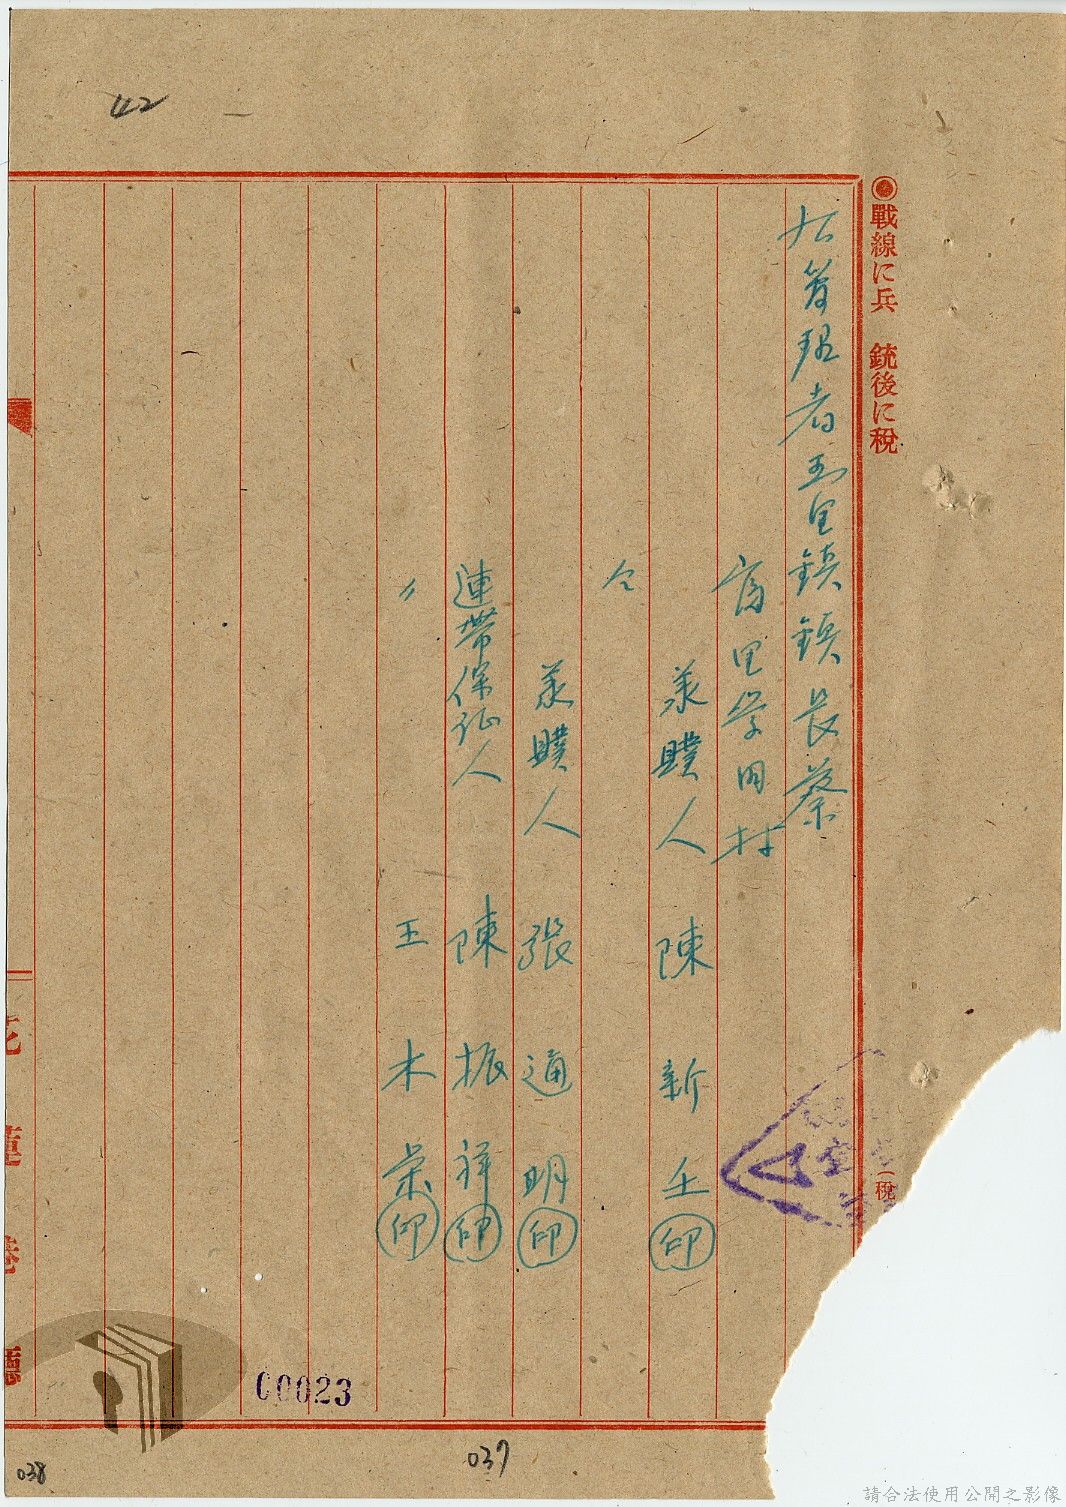 42
◉戰線に兵　銃後に税
(税
公管理者玉里鎮鎮長蔡
里学田村
承購人　陳新
仝
承購人　張通明㊞
連帯保証人　陳振祥㊞
〃　王木榮㊞
花蓮港廳
00023
037
038
請合法使用公開之影像